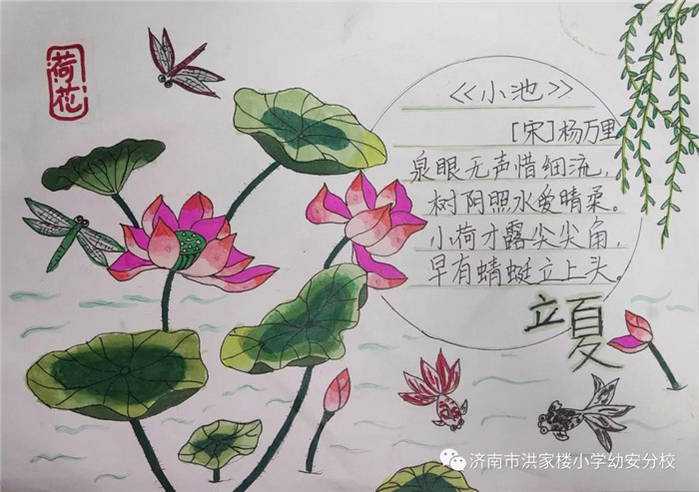 荷花
《小池》
[宋]杨万里
泉眼无声惜细流，
树阴照水爱晴柔。
小荷才露尖尖角，
早有蜻蜓立上头。
立夏
济南市洪家楼小学幼安分校